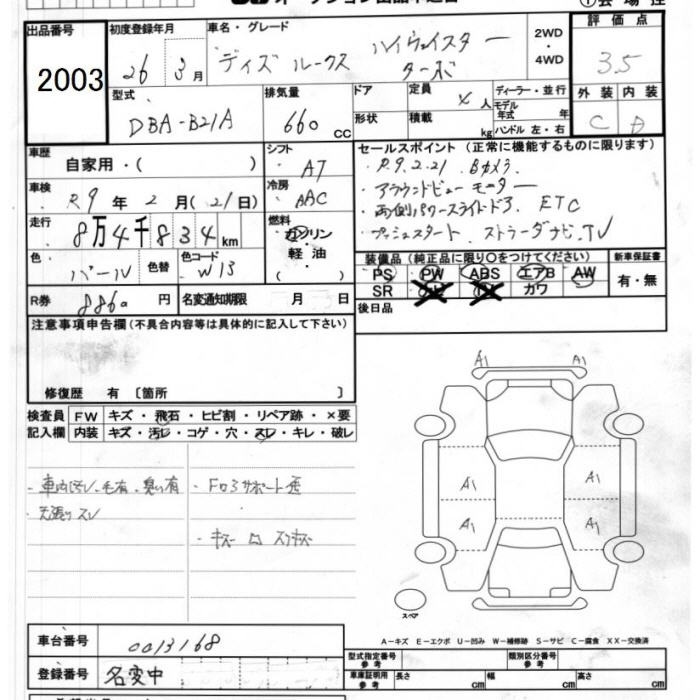 出品番号
2003
初度登録年月
26 年 3 月
車名・グレード
デイズ ルークス ハイウェイスター
ターボ
2WD
・
4WD
評価点
3.5
外装 内装
C D
型式
DBA-B21A
排気量
660 CC
ドア
形状
定員
人
積載
kg
ディーラー・並行
モデル年式 年
ハンドル 左・右
車歴
自家用・( )
シフト
AT
車検
R9 年 2 月 (21日)
冷房
AAC
走行
8万4千834km
燃料
ガソリン
軽油
( )
色
パール
色替
色コード
W13
R券
円
名変通知期限 月 日
セールスポイント (正常に機能するものに限ります)
・R9.2.21 Bカメラ
・アラウンドビューモニター
・両側パワースライドドア ETC
・プッシュスタート ストラーダナビ.TV
装備品 (純正品に限り〇をつけてください)
新車保証書
PS PW ABS エアB AW
有・無
SR カワ
後日品
注意事項申告欄(不具合内容等は具体的に記入して下さい)
修復歴 有 〔箇所 〕
検査員
記入欄
FW キズ・飛石・ヒビ割・リペア跡・×要
内装 キズ・汚レ・コゲ・穴・スレ・キレ・破レ
・車内汚レ.毛有.臭い有
・天張りスレ
A1 A1
A1 A1
A1 A1
スペア
A-キズ E-エクボ U-凹み W-補修跡 S-サビ C-腐食 XX-交換済
車台番号
0013168
登録番号
名変中
型式指定番号
参考
類別区分番号
参考
車庫証明用
参考
長さ cm
幅 cm
高さ cm